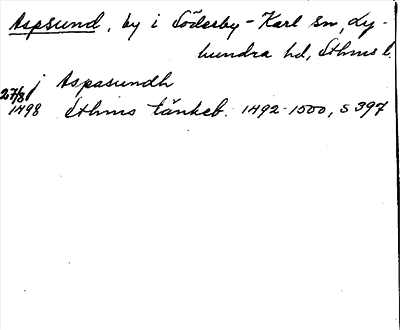 Aspsund, by i Söderby-Karl sn, Ly-
hundra hd, Sthms l.
i Aspasundh
27/8 1498 Sthms tänkeb. 1492-1500, s 397